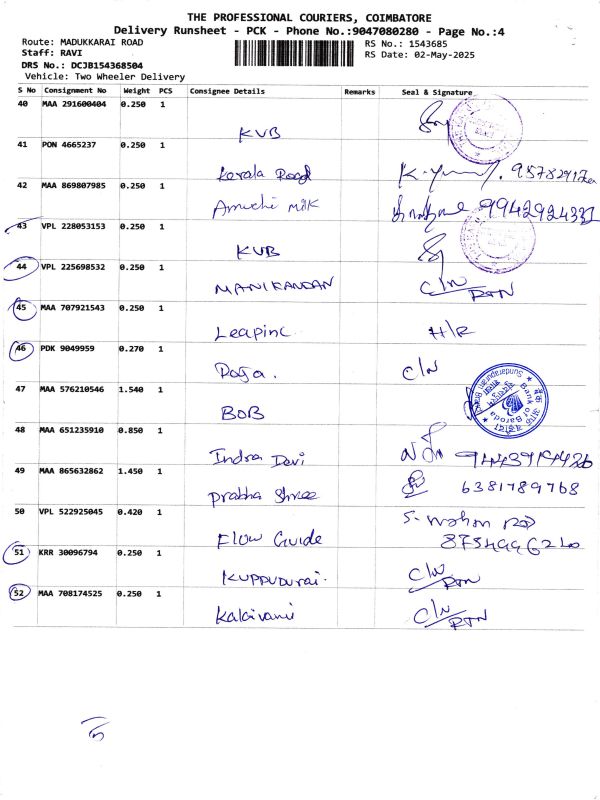 THE PROFESSIONAL COURIERS, COIMBATORE
Delivery Runsheet - PCK - Phone No.:9047080280 - Page No.:4
Route: MADUKKARAI ROAD
RS No.: 1543685
Staff: RAVI
RS Date: 02-May-2025
DRS No.: DCJB154368504
Vehicle: Two Wheeler Delivery
S No Consignment No Weight PCS Consignee Details Remarks Seal & Signature
40 MAA 291600404 0.250 1
KVB
41 PON 4665237 0.250 1
Kerala Road
42 MAA 869807985 0.250 1
Amuthi Milk 9942924331
43 VPL 228053153 0.250 1
KVB
44 VPL 225698532 0.250 1
MANIKANDAN C/N RTN
45 MAA 707921543 0.250 1
Leapinc H/R
46 PDK 9049959 0.270 1
Poja. C/N
47 MAA 576210546 1.540 1
BOB
Bank of Baroda
48 MAA 651235910 0.850 1
Indra Devi
49 MAA 865632862 1.450 1
Prabha Shree 6381789768
50 VPL 522925045 0.420 1
Flow Guide
51 KRR 30096794 0.250 1
Kuppudurai. C/N RTN
52 MAA 708174525 0.250 1
Kalaivani C/N RTN